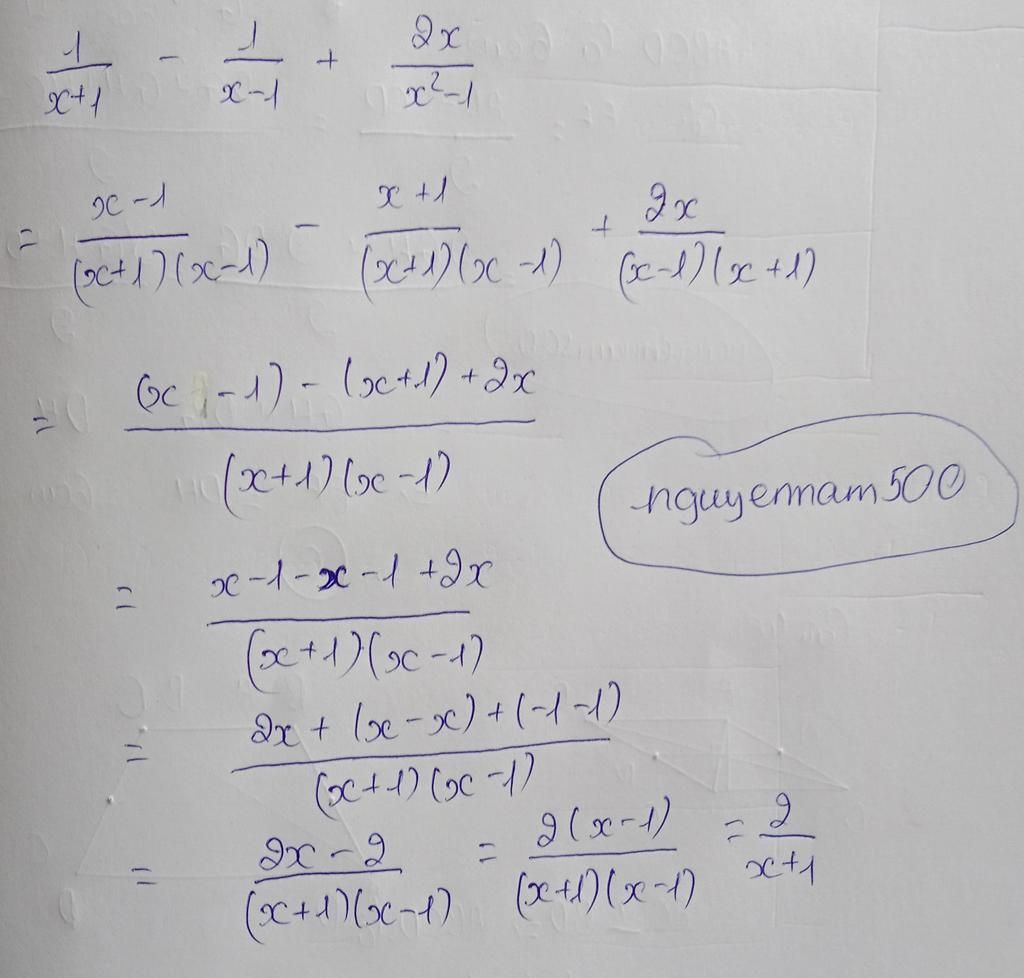 1/(x+1) - 1/(x-1) + 2x/(x²-1)
= (x-1)/((x+1)(x-1)) - (x+1)/((x+1)(x-1)) + 2x/((x-1)(x+1))
= ((x-1)-(x+1)+2x)/((x+1)(x-1))
nguyennam500
= (x-1-x-1+2x)/((x+1)(x-1))
= (2x+(x-x)+(-1-1))/((x+1)(x-1))
= (2x-2)/((x+1)(x-1)) = 2(x-1)/((x+1)(x-1)) = 2/(x+1)